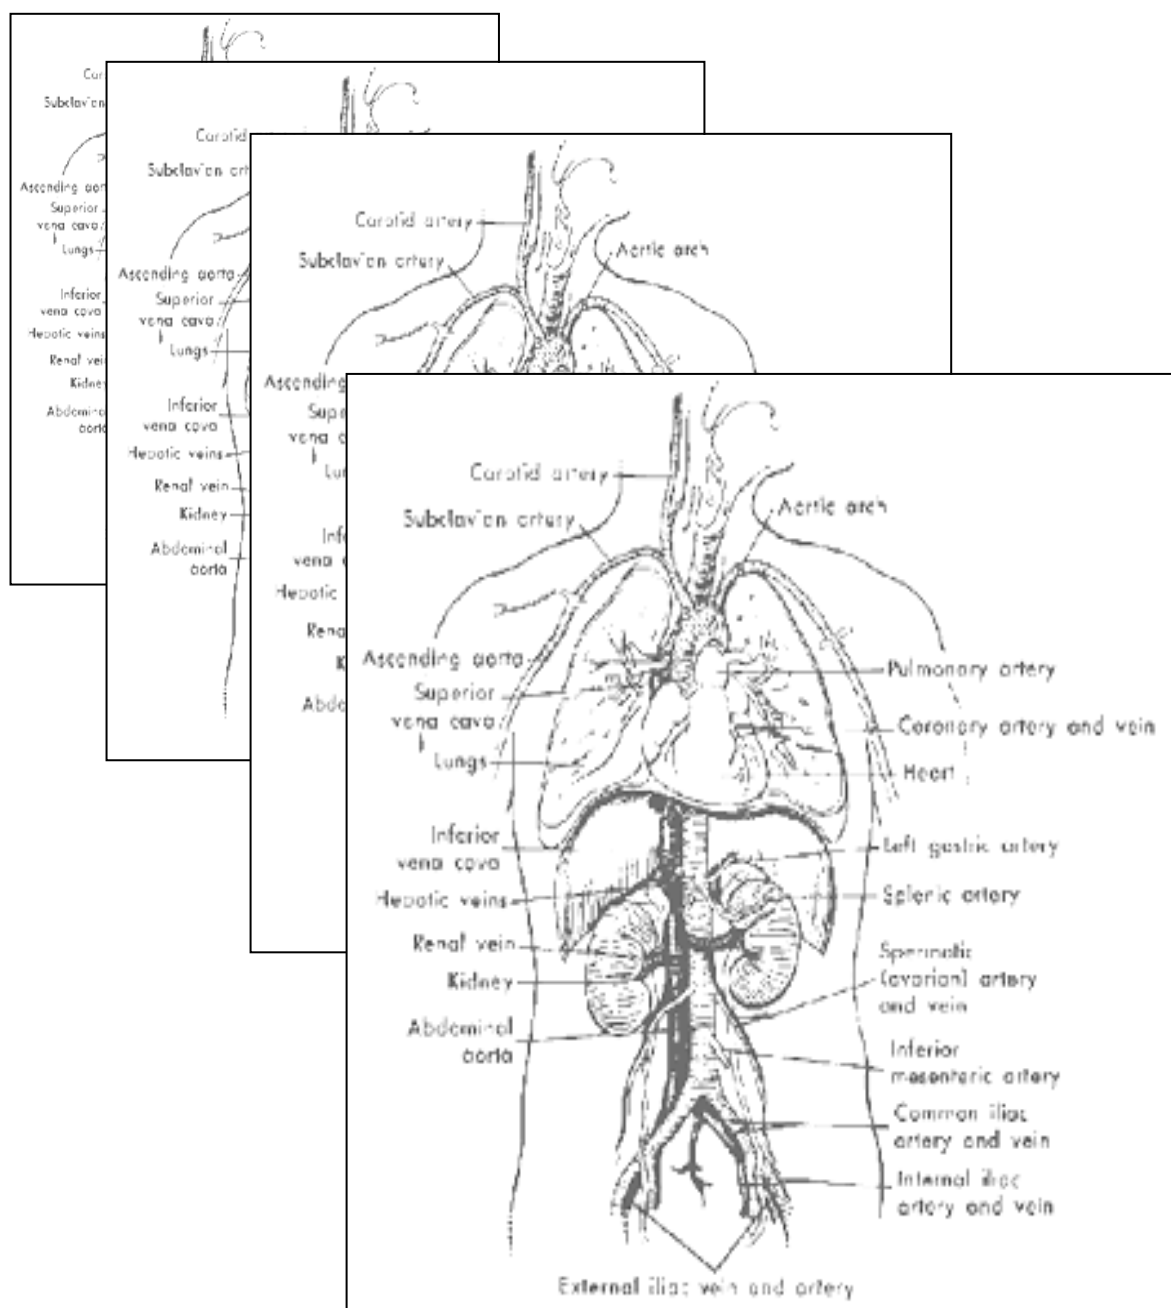 Car
Subclavian
Ascending aor
Superior
vena cava
Lungs
Inferior
vena cava
Hepatic veins
Renal vei
Kidney
Abdominal
aorta
Carotid
Subclavian art
Ascending aorta
Superior
vena cava
Lungs
Inferior
vena cava
Hepatic veins
Renal vein
Kidney
Abdominal
aorta
Carotid artery
Subclavian artery
Aortic arch
Ascending
Supe
vena c
Lun
Infe
vena c
Hepatic
Rena
K
Abdo
Carotid artery
Subclavian artery
Aortic arch
Ascending aorta
Superior
vena cava
Lungs
Inferior
vena cava
Hepatic veins
Renal vein
Kidney
Abdominal
aorta
Pulmonary artery
Coronary artery and vein
Heart
Left gastric artery
Splenic artery
Spermatic
(ovarian) artery
and vein
Inferior
mesenteric artery
Common iliac
artery and vein
Internal iliac
artery and vein
External iliac vein and artery